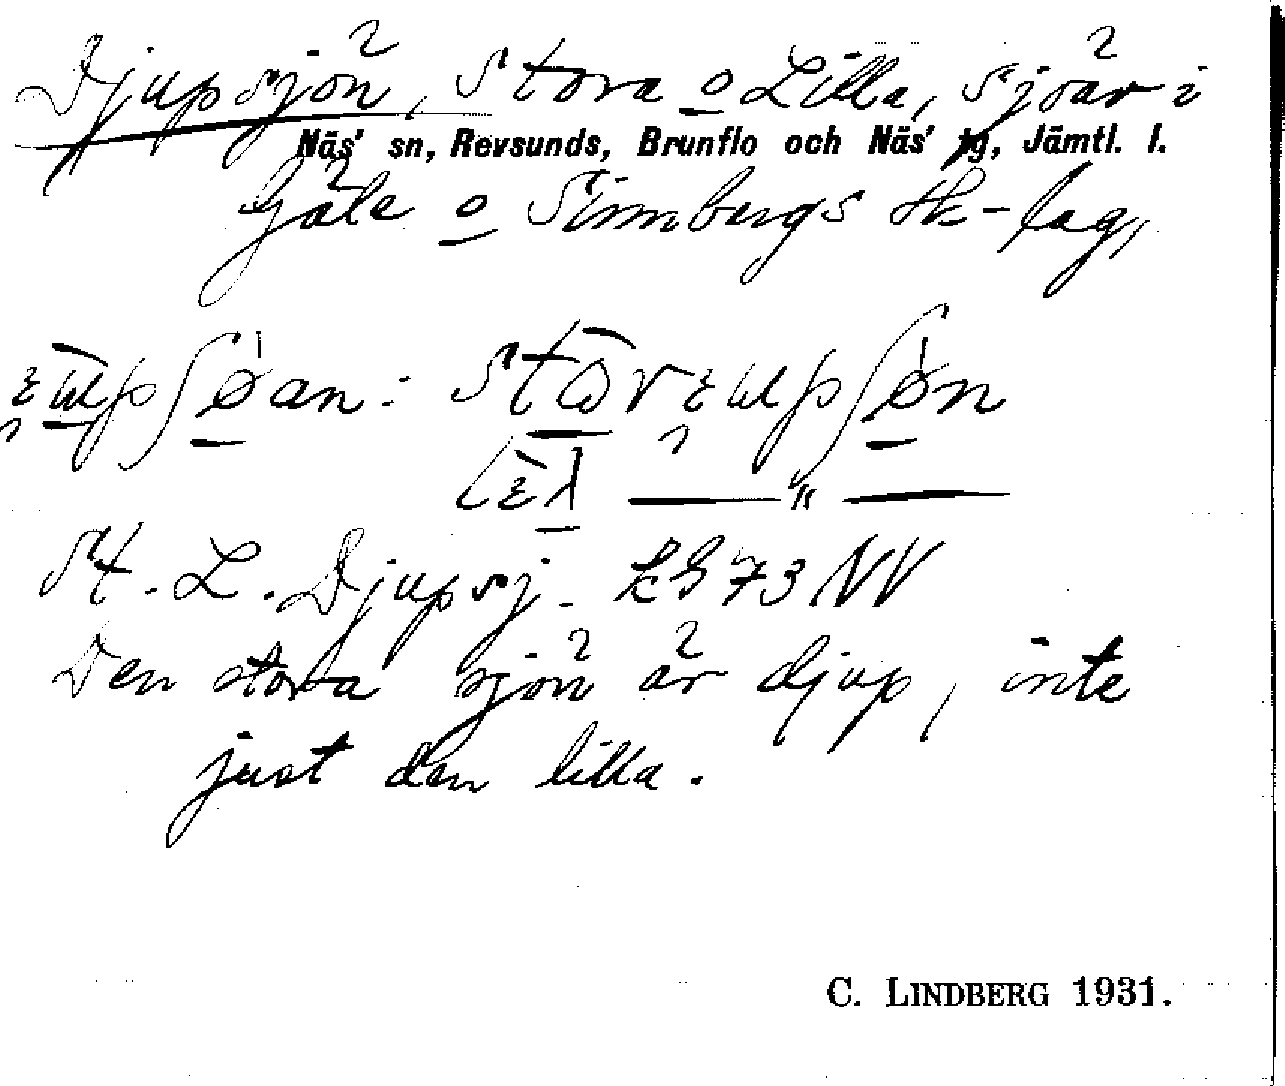 Djupsjön, Stora o Lilla, sjöar i
Näs' sn, Revsunds, Brunflo och Näs' tg, Jämtl. l.
Gåle o Sinnbergs sk-lag,
St. L. Djupsj. LS 73 NV
Den stora sjön är djup, inte
just den lilla.
C. LINDBERG 1931.